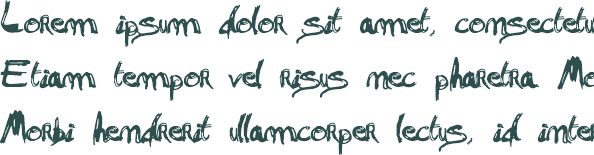 Lorem ipsum dolor sit amet, consectetu
Etiam tempor vel risus nec pharetra Mo
Morbi hendrerit ullamcorper lectus, id inter